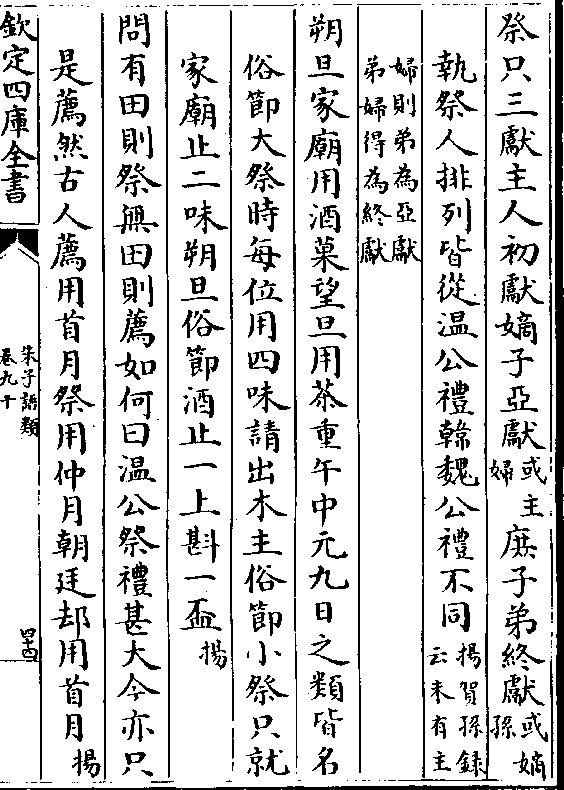 祭只三獻主人初獻嫡子亞獻或主婦庶子弟終獻或嫡孫
執祭人排列皆從温公禮韓魏公禮不同揚賀孫録云未有主
婦則弟為亞獻弟婦得為終獻
朔旦家廟用酒菓望旦用茶重午中元九日之類皆名
俗節大祭時每位用四味請出木主俗節小祭只就
家廟止二味朔旦俗節酒止一上斟一盃揚
問有田則祭無田則薦如何曰温公祭禮甚大今亦只
是薦然古人薦用首月祭用仲月朝廷却用首月揚
欽定四庫全書
朱子語類
卷九十
四十四